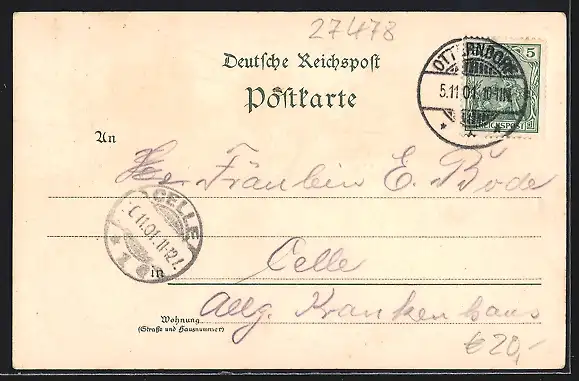 27478
Deutsche Reichspost
Postkarte
OTTERNDORF
5.11.01. 10-11N.
5
REICHSPOST
An
Fräulein E. Bode
CELLE
11.01. 11-12
1
in
Celle
Allg. Krankenhaus
Wohnung
(Straße und Hausnummer)
€20,-